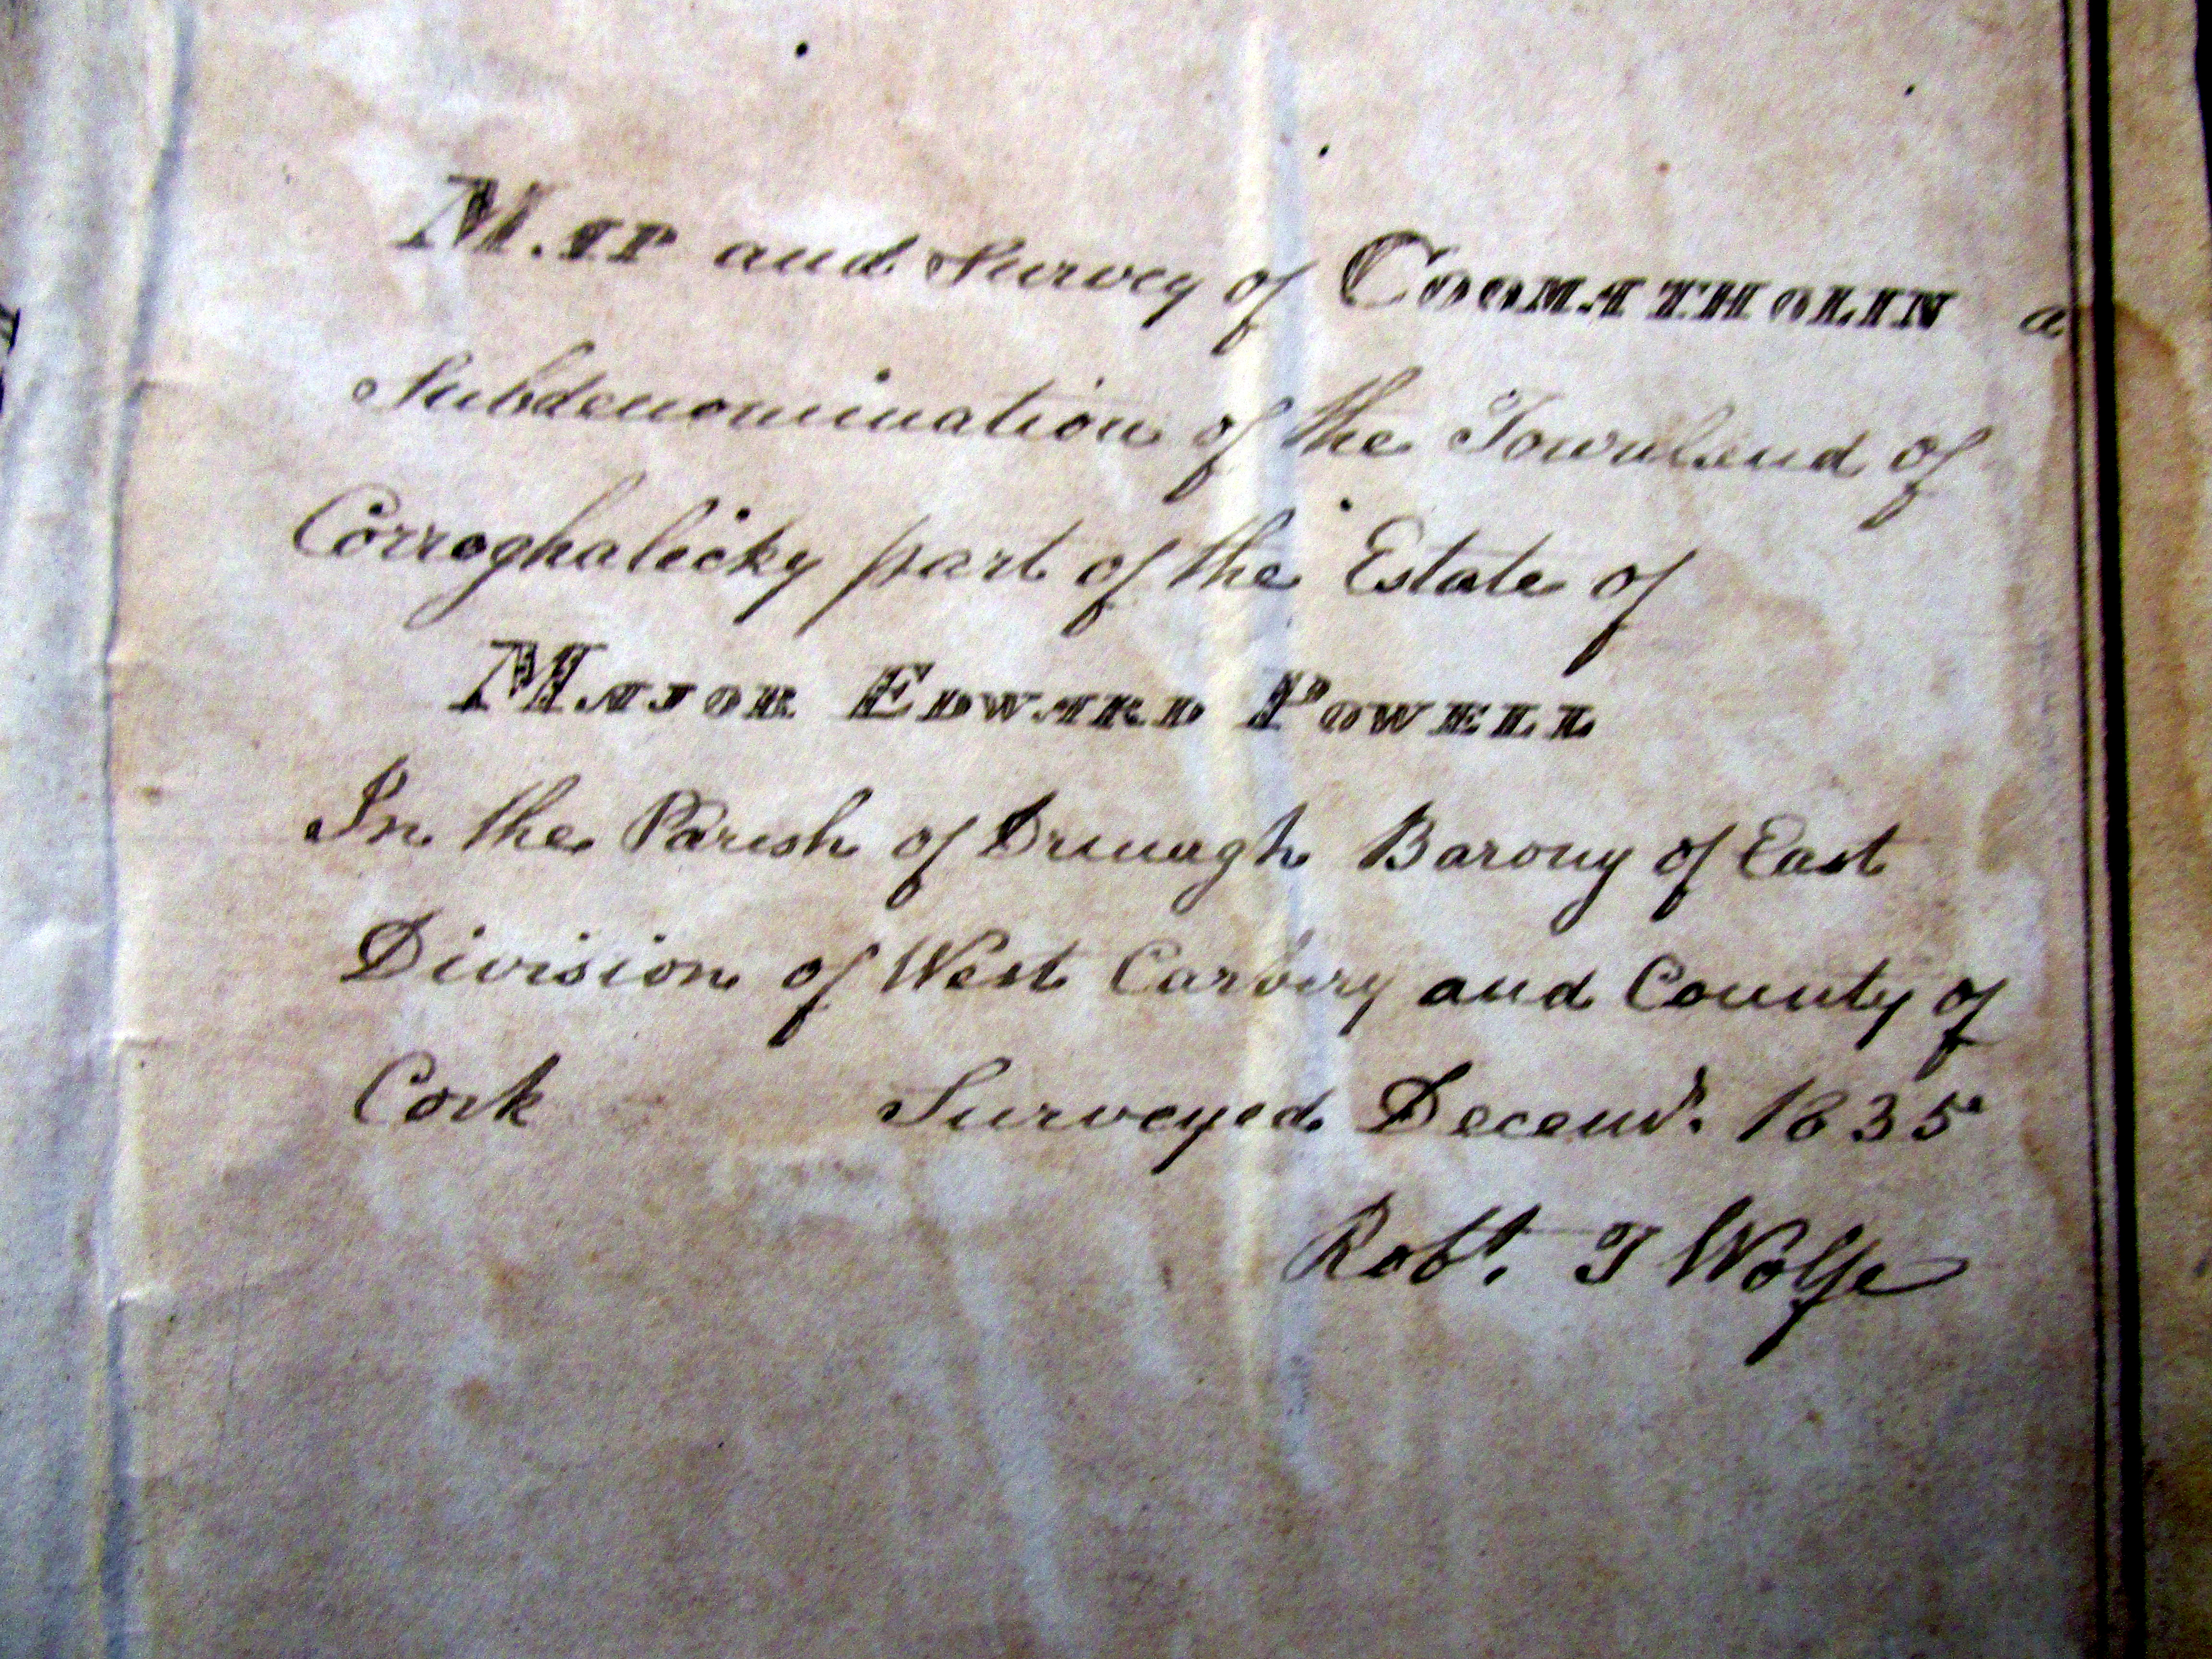 MAP and Survey of COOMATHOLIN a
Subdenomination of the Townland of
Corroghalicky part of the Estate of
MAJOR EDWARD POWELL
In the Parish of Drinagh Barony of East
Division of West Carbery and County of
Cork Surveyed Decemr. 1835
Robt. T Wolfe